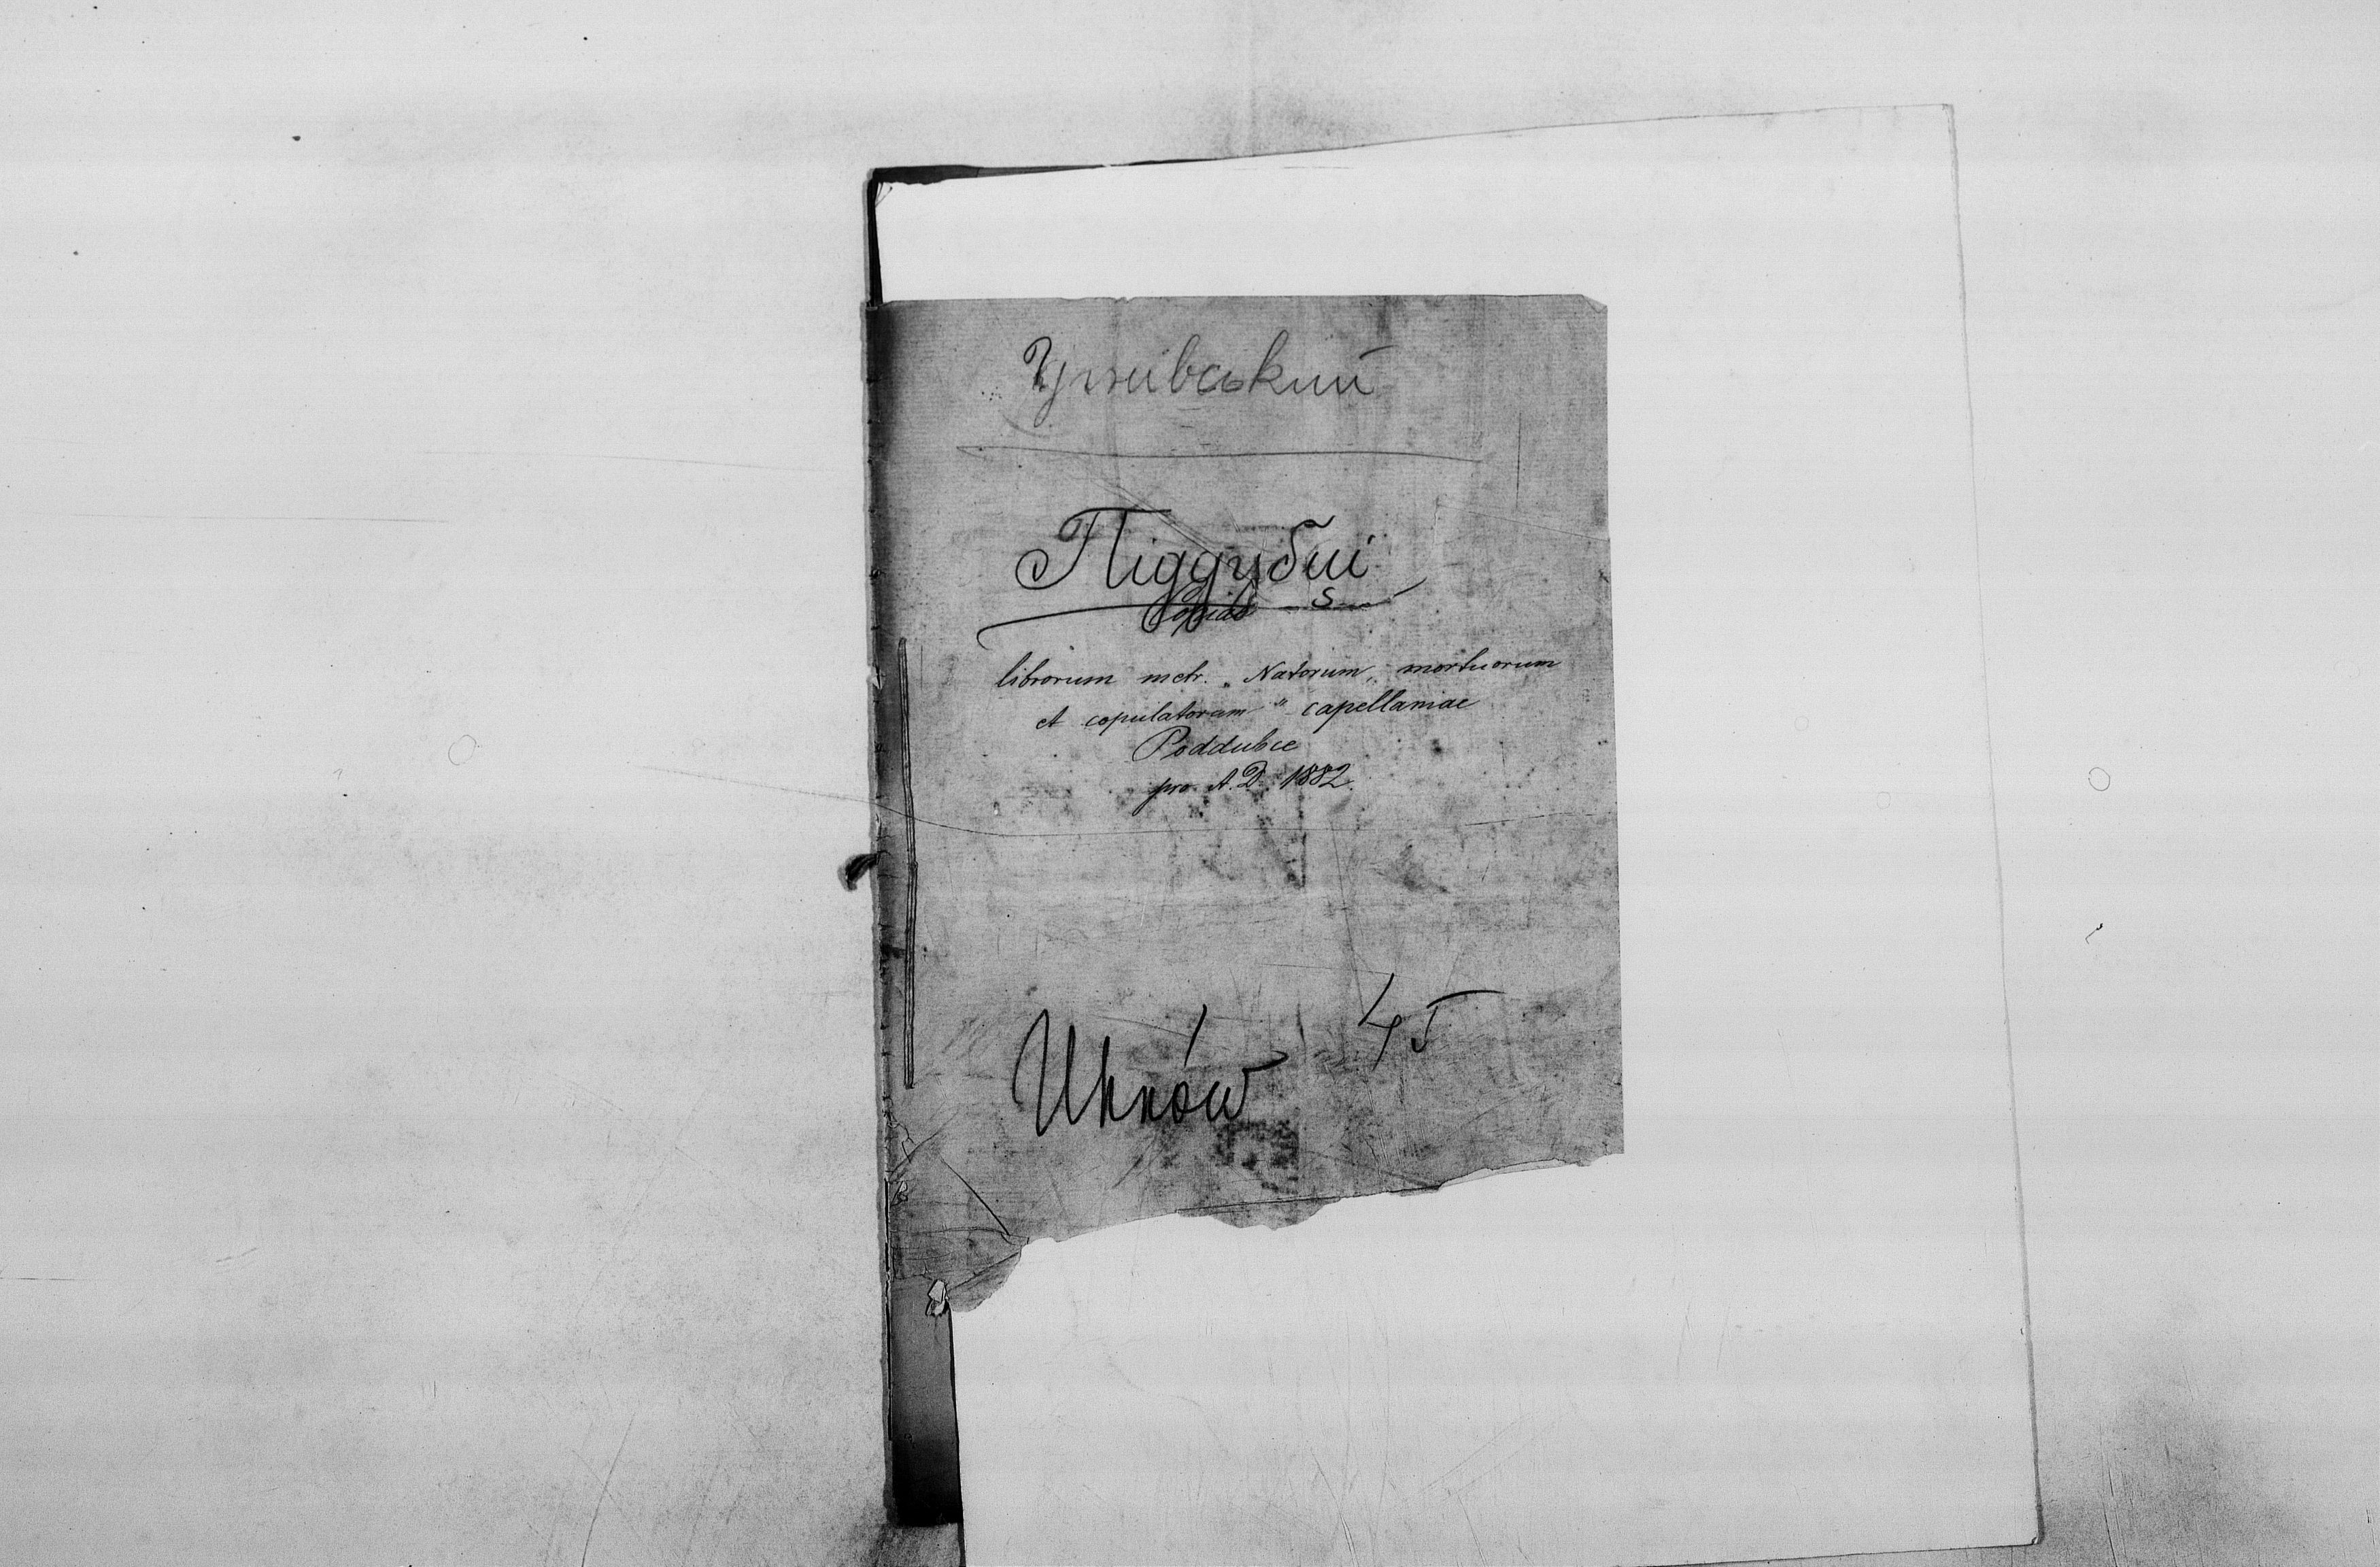 Угнівський
Піддубці
Copiae
librorum metr. „Natorum, mortuorum
et copulatorum" capellaniae
Poddubce
pro A.D. 1882.
45
Uhnów